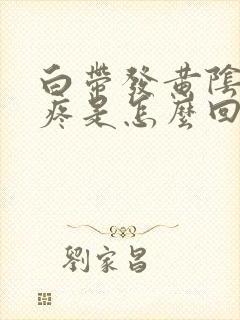 白帶發黃陰
疼是怎麼回
劉家昌